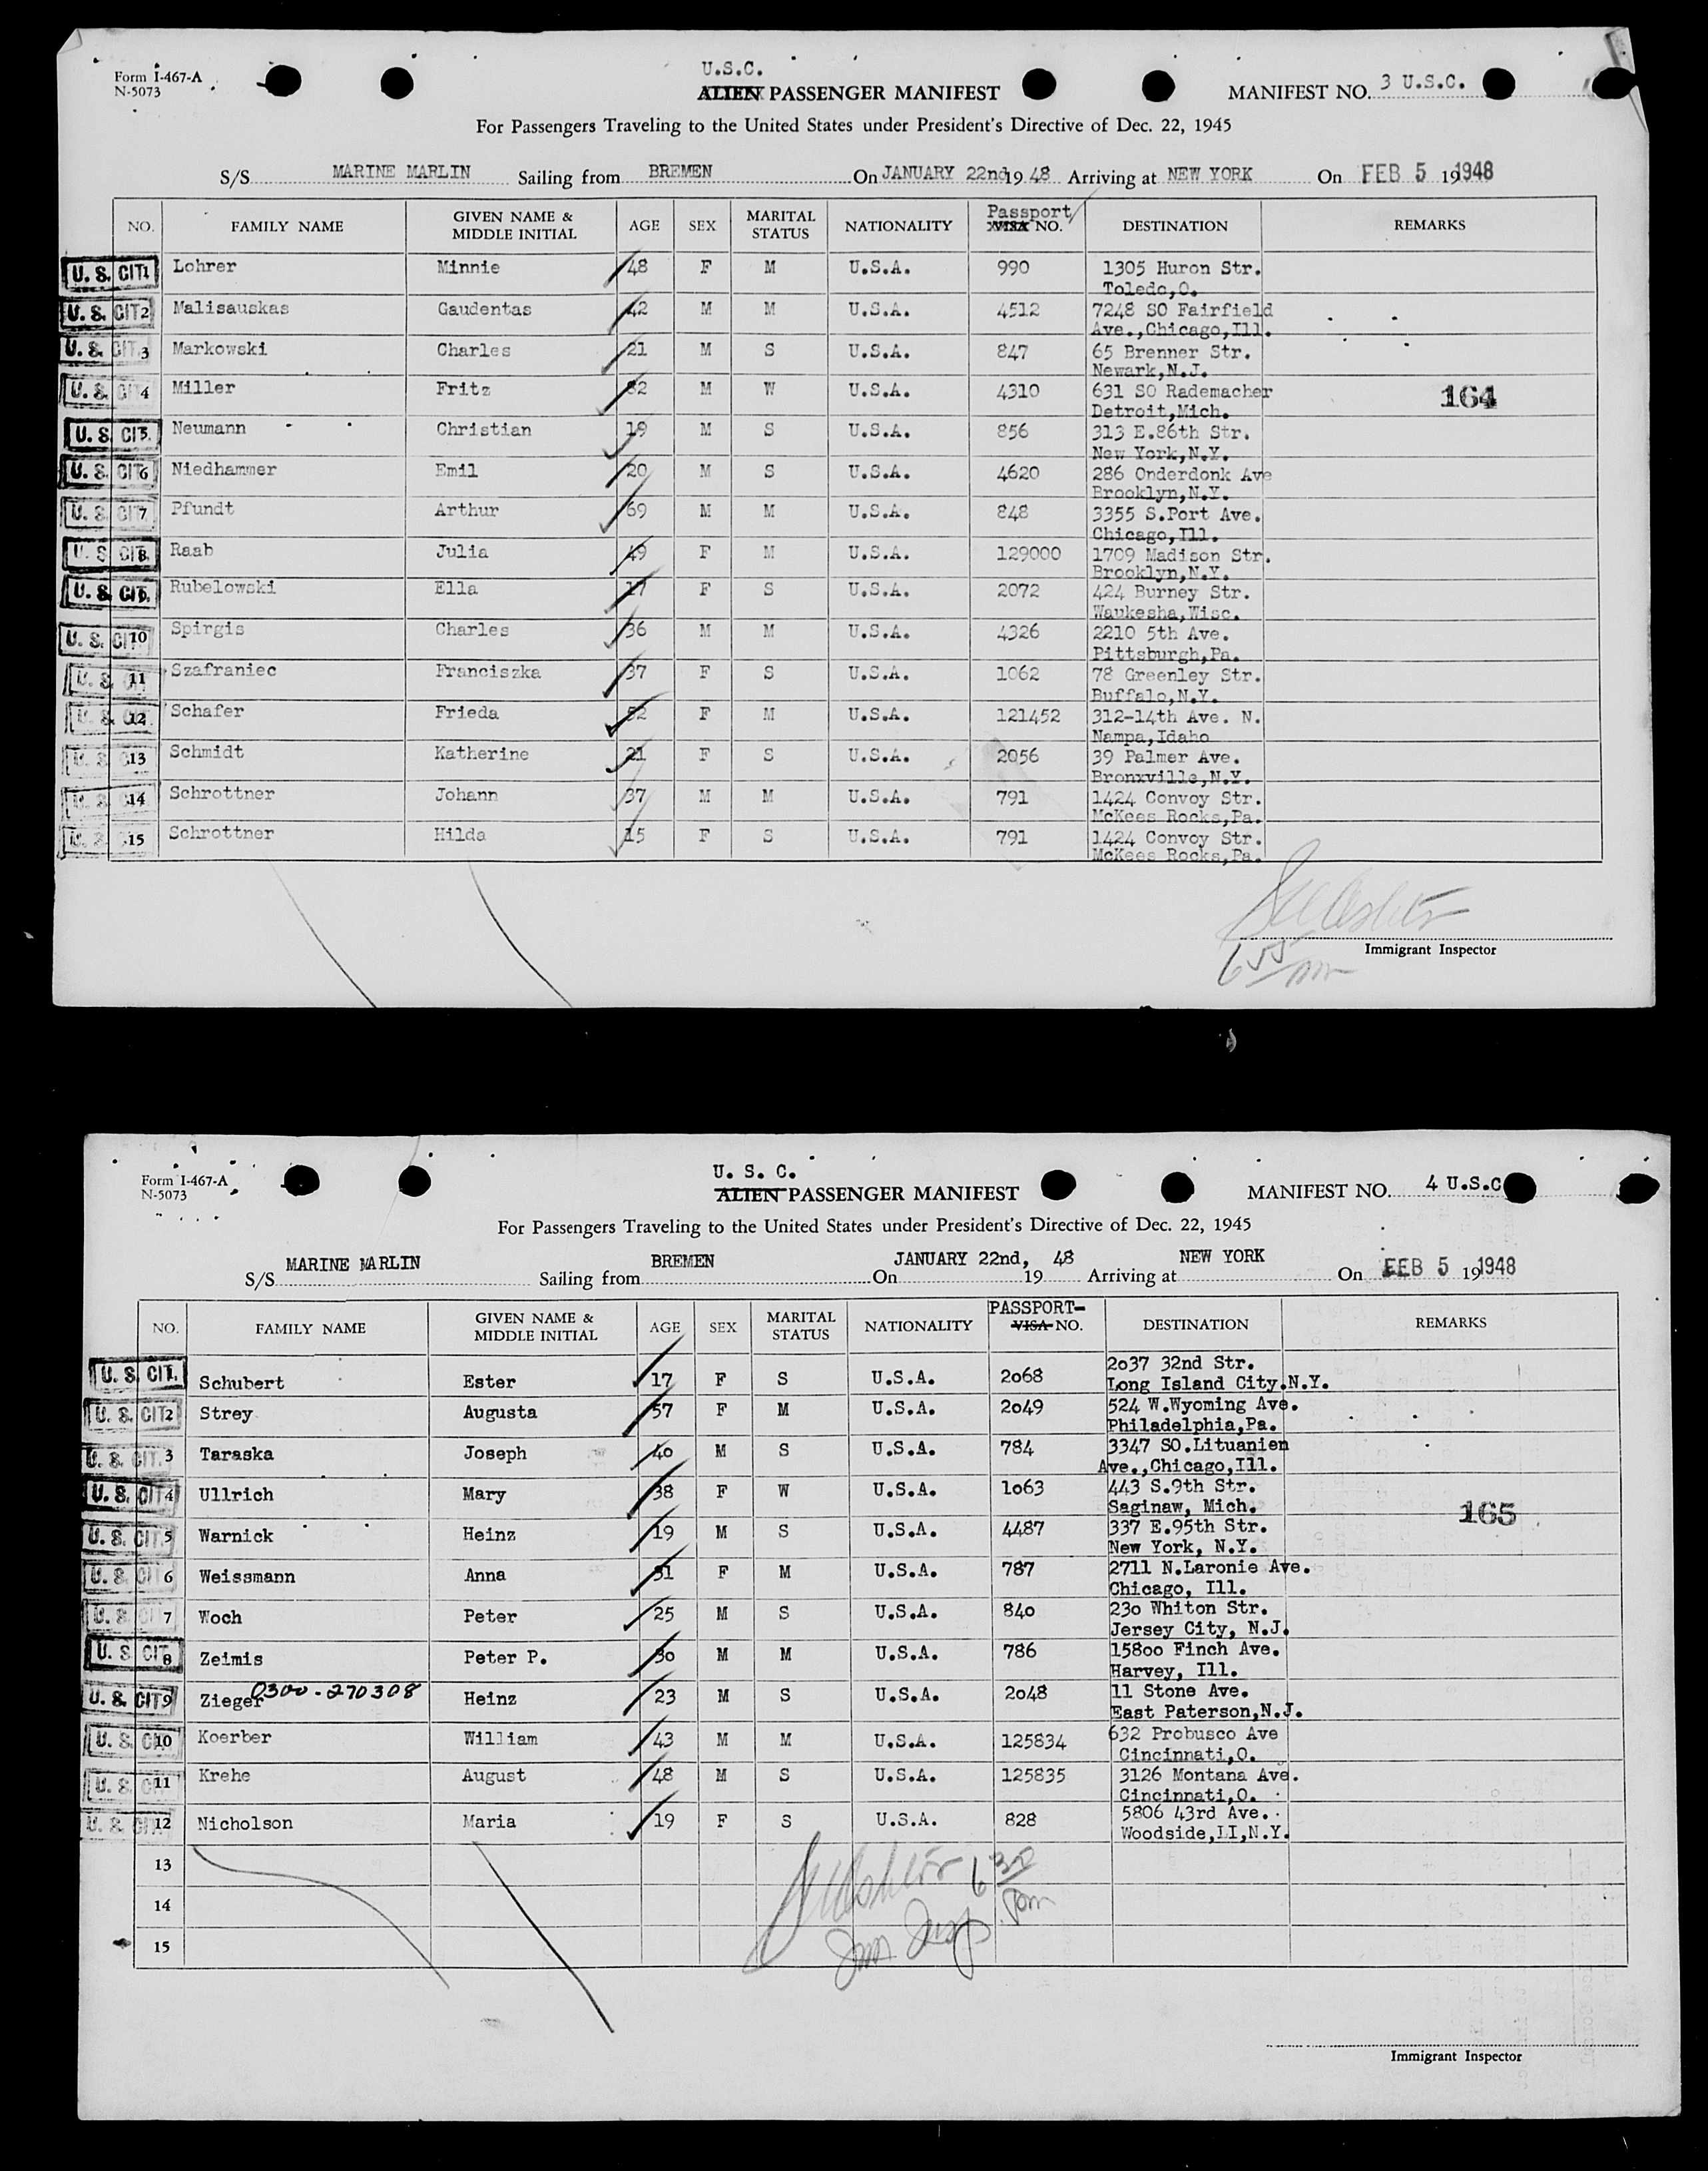 Form I-467-A
N-5073
U.S.C.
ALIEN PASSENGER MANIFEST
MANIFEST NO. 3 U.S.C.
For Passengers Traveling to the United States under President's Directive of Dec. 22, 1945
S/S MARINE MARLIN Sailing from BREMEN On JANUARY 22nd 19 48 Arriving at NEW YORK On FEB 5 19 1948
NO. FAMILY NAME GIVEN NAME & MIDDLE INITIAL AGE SEX MARITAL STATUS NATIONALITY Passport/ VISA NO. DESTINATION REMARKS
U. S. CIT. 1 Lohrer Minnie 48 F M U.S.A. 990 1305 Huron Str.
Toledo,O.
U. S. CIT. 2 Malisauskas Gaudentas 42 M M U.S.A. 4512 7248 SO Fairfield
Ave.,Chicago,Ill.
U. S. CIT. 3 Markowski Charles 21 M S U.S.A. 847 65 Brenner Str.
Newark,N.J.
U. S. CIT. 4 Miller Fritz 82 M W U.S.A. 4310 631 SO Rademacher
Detroit,Mich.
164
U. S. CIT. 5 Neumann Christian 19 M S U.S.A. 856 313 E.86th Str.
New York,N.Y.
U. S. CIT. 6 Niedhammer Emil 20 M S U.S.A. 4620 286 Onderdonk Ave
Brooklyn,N.Y.
U. S. CIT. 7 Pfundt Arthur 69 M M U.S.A. 848 3355 S.Port Ave.
Chicago,Ill.
U. S. CIT. 8 Raab Julia 49 F M U.S.A. 129000 1709 Madison Str.
Brooklyn,N.Y.
U. S. CIT. 9 Rubelowski Ella 17 F S U.S.A. 2072 424 Burney Str.
Waukesha,Wisc.
U. S. CIT. 10 Spirgis Charles 36 M M U.S.A. 4326 2210 5th Ave.
Pittsburgh,Pa.
U. S. 11 Szafraniec Franciszka 37 F S U.S.A. 1062 78 Greenley Str.
Buffalo,N.Y.
U. S. 12 Schafer Frieda 52 F M U.S.A. 121452 312-14th Ave. N.
Nampa,Idaho
U. S. 13 Schmidt Katherine 21 F S U.S.A. 2056 39 Palmer Ave.
Bronxville,N.Y.
U. S. 14 Schrottner Johann 37 M M U.S.A. 791 1424 Convoy Str.
McKees Rocks,Pa.
U. S. 15 Schrottner Hilda 15 F S U.S.A. 791 1424 Convoy Str.
McKees Rocks,Pa.
Immigrant Inspector
6 55 pm
Form I-467-A
N-5073
U. S. C.
ALIEN PASSENGER MANIFEST
MANIFEST NO. 4 U.S.C
For Passengers Traveling to the United States under President's Directive of Dec. 22, 1945
S/S MARINE MARLIN Sailing from BREMEN On JANUARY 22nd, 19 48 Arriving at NEW YORK On FEB 5 19 1948
NO. FAMILY NAME GIVEN NAME & MIDDLE INITIAL AGE SEX MARITAL STATUS NATIONALITY PASSPORT- VISA NO. DESTINATION REMARKS
U. S. CIT. 1 Schubert Ester 17 F S U.S.A. 2068 2037 32nd Str.
Long Island City.N.Y.
U. S. CIT. 2 Strey Augusta 57 F M U.S.A. 2049 524 W.Wyoming Ave.
Philadelphia,Pa.
U. S. CIT. 3 Taraska Joseph 40 M S U.S.A. 784 3347 SO.Lituanien
Ave.,Chicago,Ill.
U. S. CIT. 4 Ullrich Mary 38 F W U.S.A. 1063 443 S.9th Str.
Saginaw, Mich.
165
U. S. CIT. 5 Warnick Heinz 19 M S U.S.A. 4487 337 E.95th Str.
New York, N.Y.
U. S. CIT. 6 Weissmann Anna 31 F M U.S.A. 787 2711 N.Laronie Ave.
Chicago, Ill.
U. S. 7 Woch Peter 25 M S U.S.A. 840 230 Whiton Str.
Jersey City, N.J.
U. S. CIT. 8 Zeimis Peter P. 30 M M U.S.A. 786 15800 Finch Ave.
Harvey, Ill.
U. S. CIT. 9 Zieger 0300-270308 Heinz 23 M S U.S.A. 2048 11 Stone Ave.
East Paterson,N.J.
U. S. 10 Koerber William 43 M M U.S.A. 125834 632 Probusco Ave
Cincinnati,O.
U. S. 11 Krehe August 48 M S U.S.A. 125835 3126 Montana Ave.
Cincinnati,O.
U. S. CIT. 12 Nicholson Maria 19 F S U.S.A. 828 5806 43rd Ave.
Woodside,LI,N.Y.
13
14
15
6 30 pm
Imm Insp
Immigrant Inspector